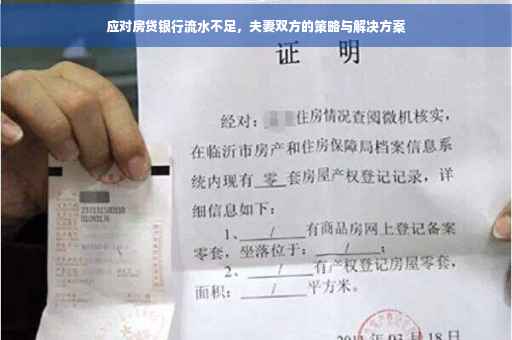 应对房贷银行流水不足，夫妻双方的策略与解决方案
证 明
经对：住房情况查阅微机核实，
在临沂市房产和住房保障局档案信息系
统内现有 零 套房屋产权登记记录，详
细信息如下：
1、 / 有商品房网上登记备案
零套，坐落位于： / ；
2、 / 有产权登记房屋零套，
面积： / 平方米。
月18日